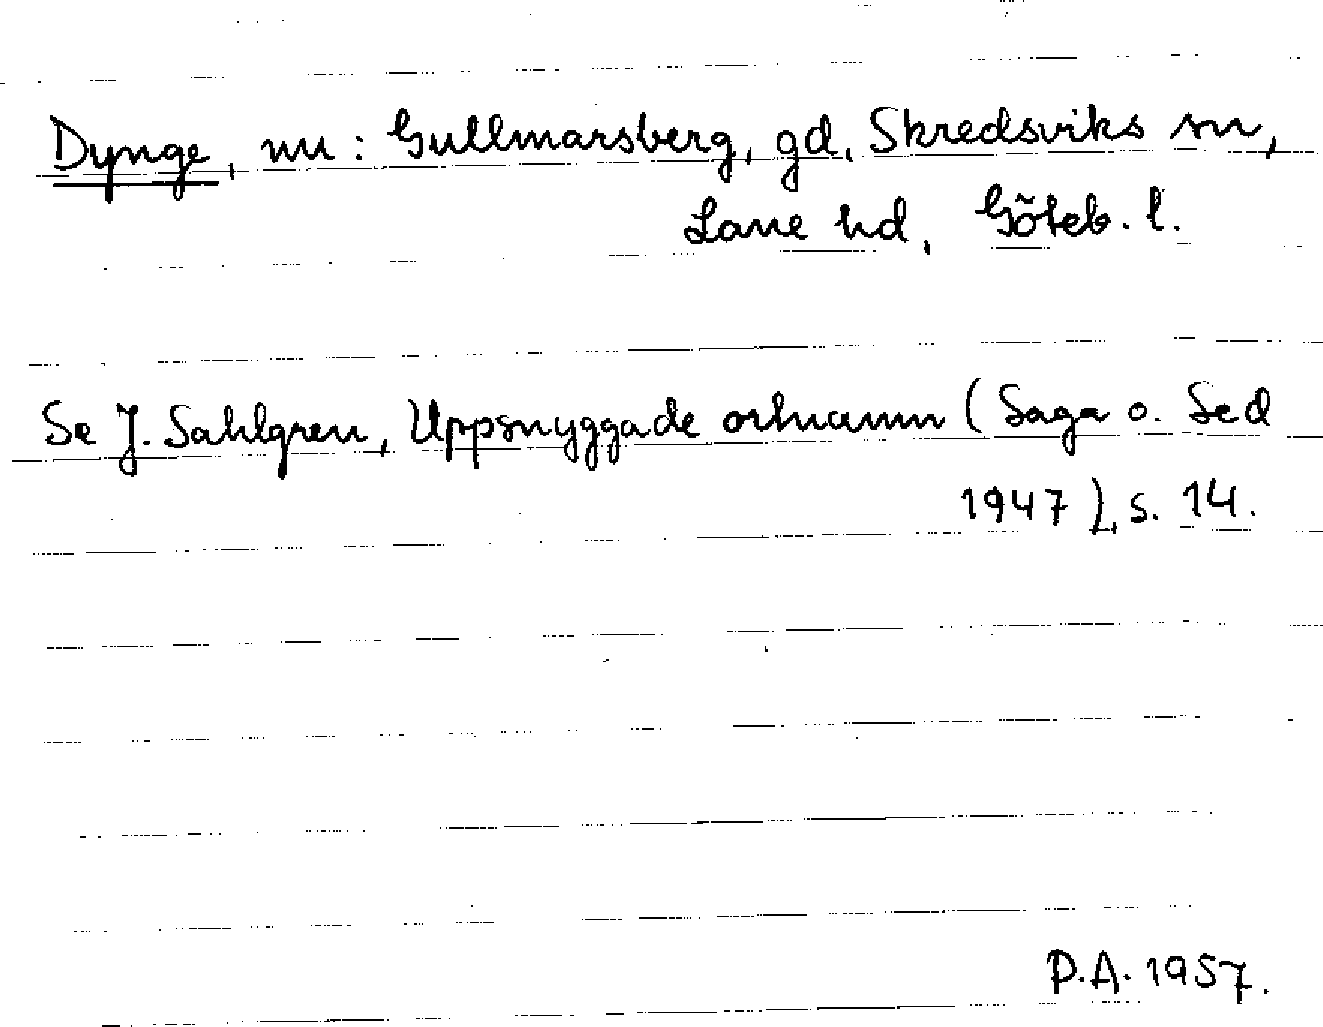 Dynge, nu: Gullmarsberg, gd, Skredsviks sn,
Lane hd, Göteb. l.
Se J. Sahlgren, Uppsnyggade ortnamn (Saga o. Sed
1947), s. 14.
P.A. 1957.